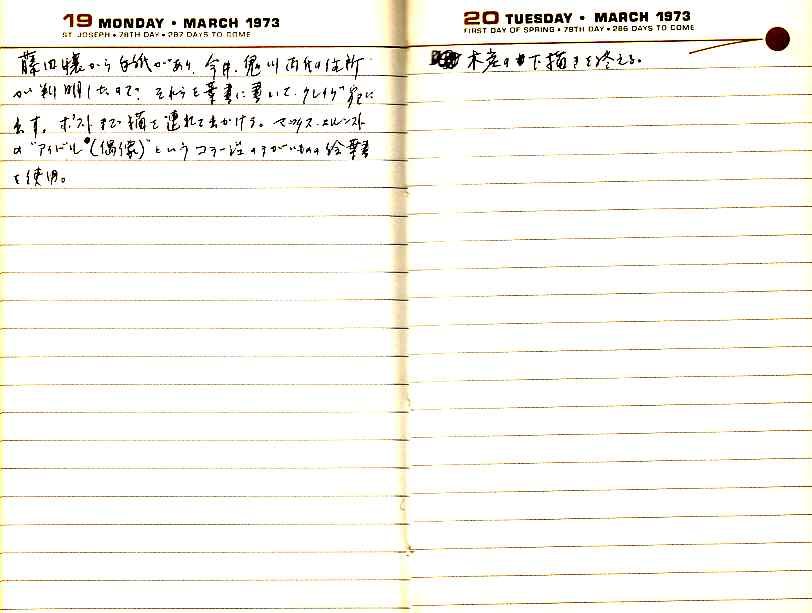 19 MONDAY • MARCH 1973
ST. JOSEPH • 78TH DAY • 287 DAYS TO COME
藤田嬢から手紙があり、今井、鬼川両氏の住所
が判明したので、それらを葉書に書いて、クレイグ宛に
出す。ポストまで猫を連れて出かける。マックス・エルンスト
の"アイドル"(偶像)"というコラージュの絵葉書
を使用。
20 TUESDAY • MARCH 1973
FIRST DAY OF SPRING • 79TH DAY • 286 DAYS TO COME
下描きを終える。